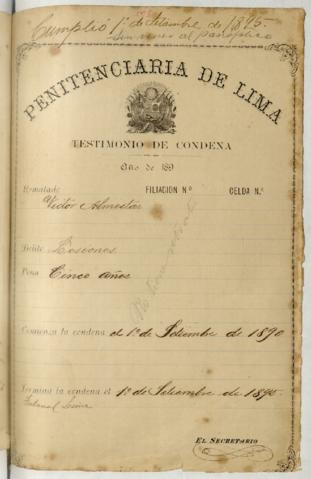 Cumplió 1º de Setiembre de 1895.
sin venir al panóptico
PENITENCIARIA DE LIMA
TESTIMONIO DE CONDENA
Año de 189
Rematado FILIACION Nº CELDA N.º
Victor Almestar
Delito Lesiones
Pena Cinco años
Comienza la condena el 1º de Setiembre de 1890
Termina la condena el 1º de Setiembre de 1895
Tribunal
EL SECRETARIO